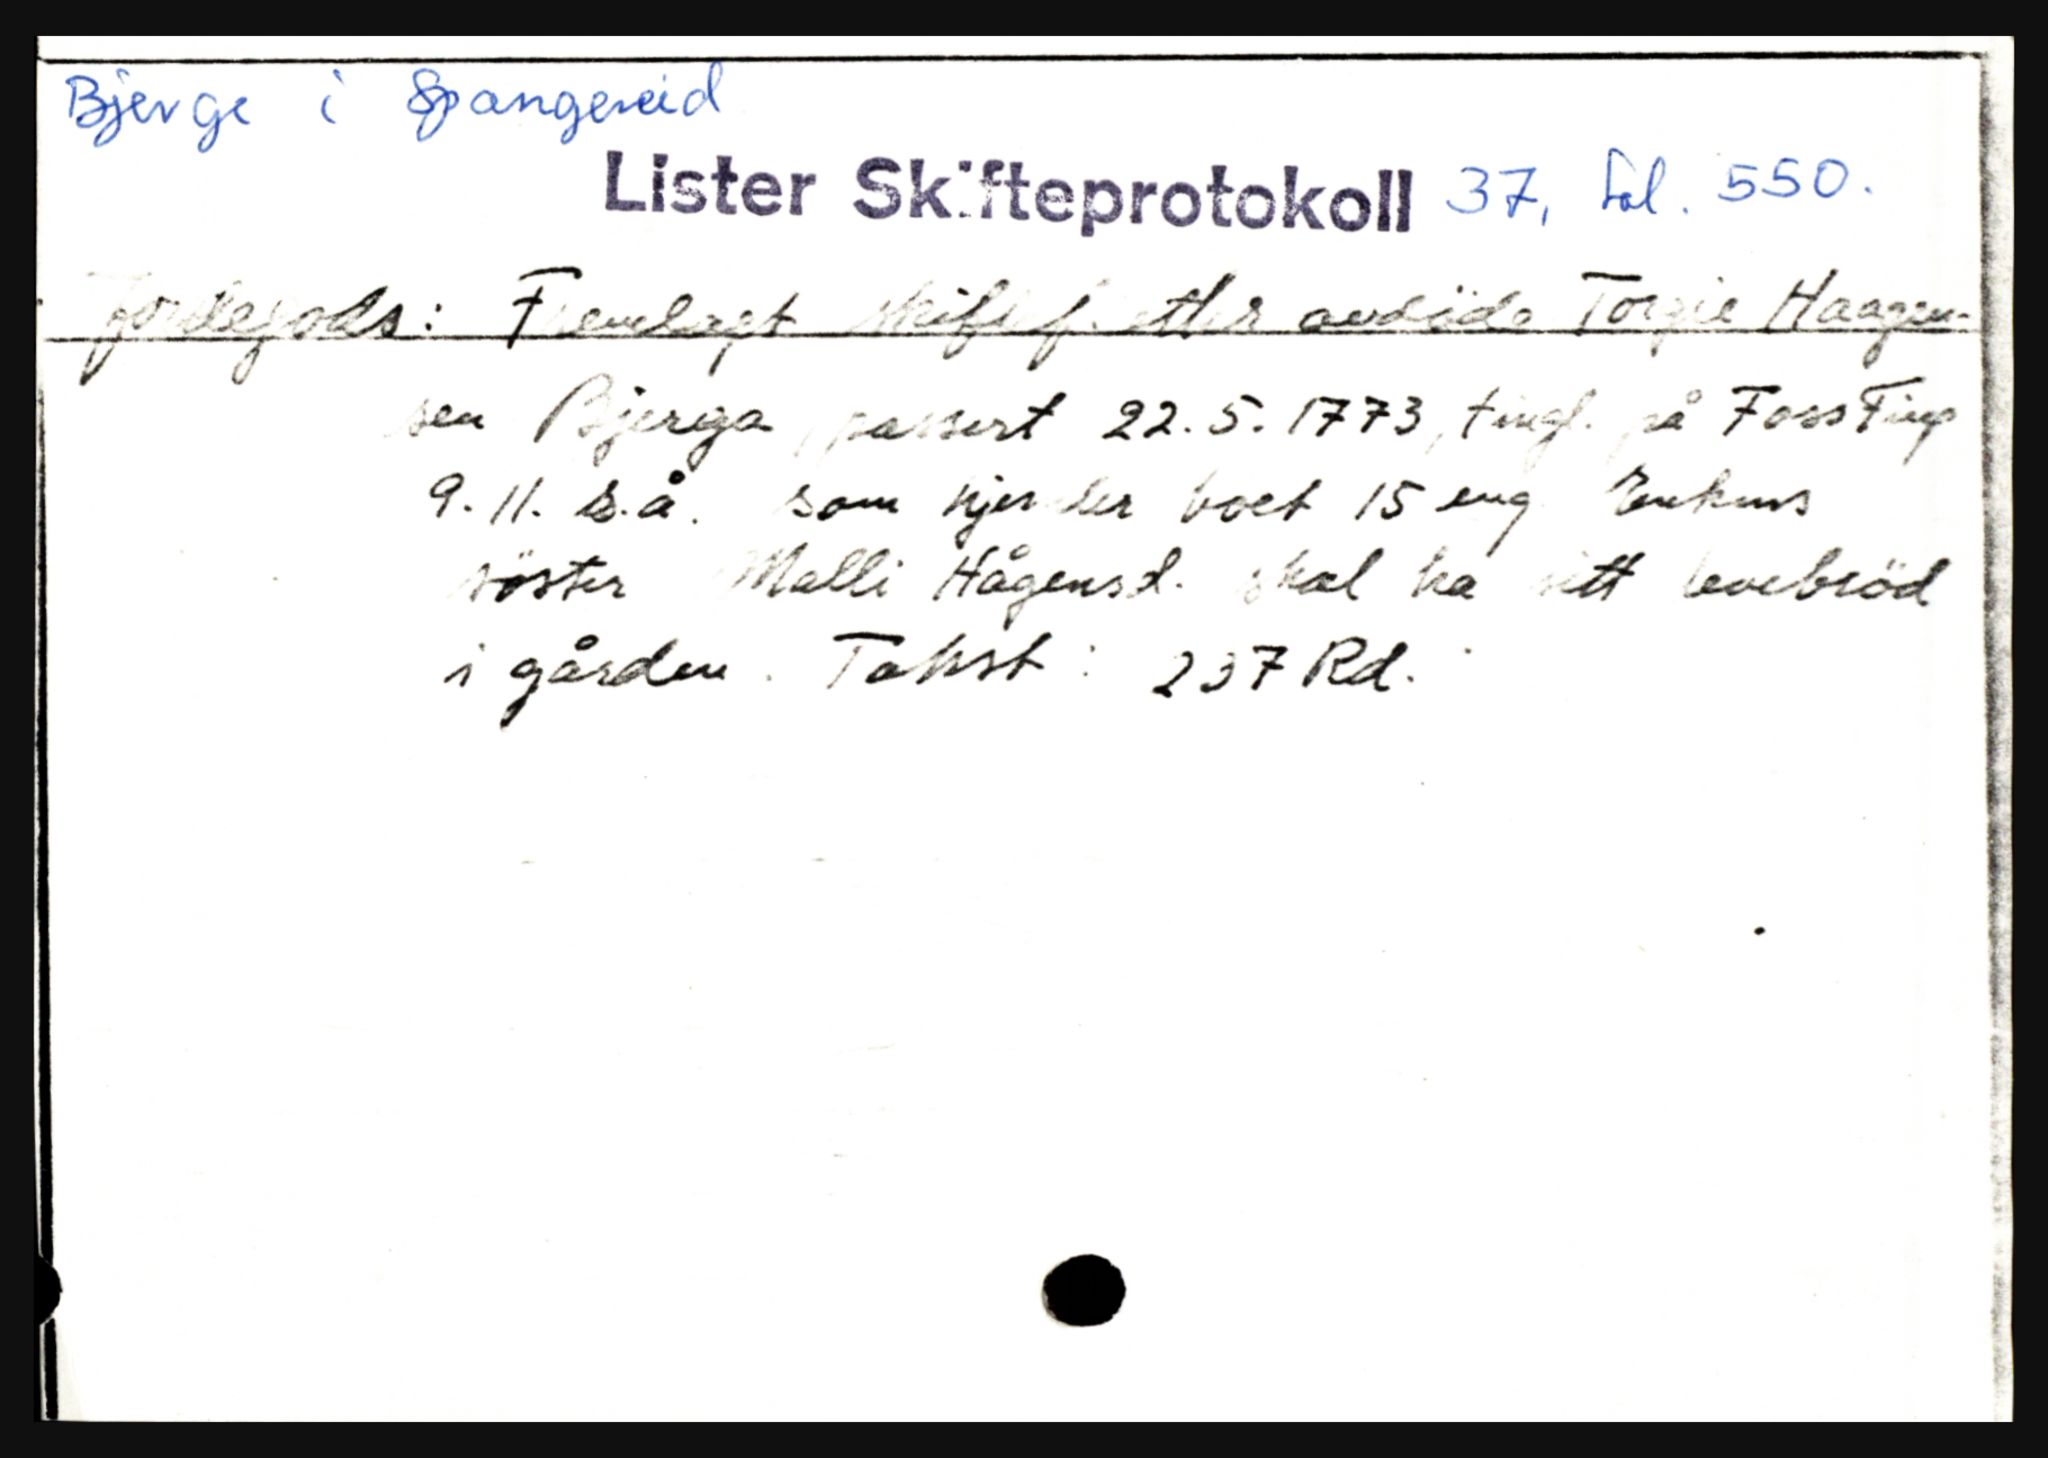 Bjerge i Spangereid
Lister Skifteprotokoll 37, fol. 550.
Jordegods: Fremlagt skiftef. etter avdöde Torgie Haagen-
sen Bjerga, passert 22.5.1773, tingl. på Foss Ting
9.11. s.å. som hjemler boet 15 eng. Enkens
söster Malli Hågensd. skal ha sitt levebröd
i gården. Takst: 237 Rd.